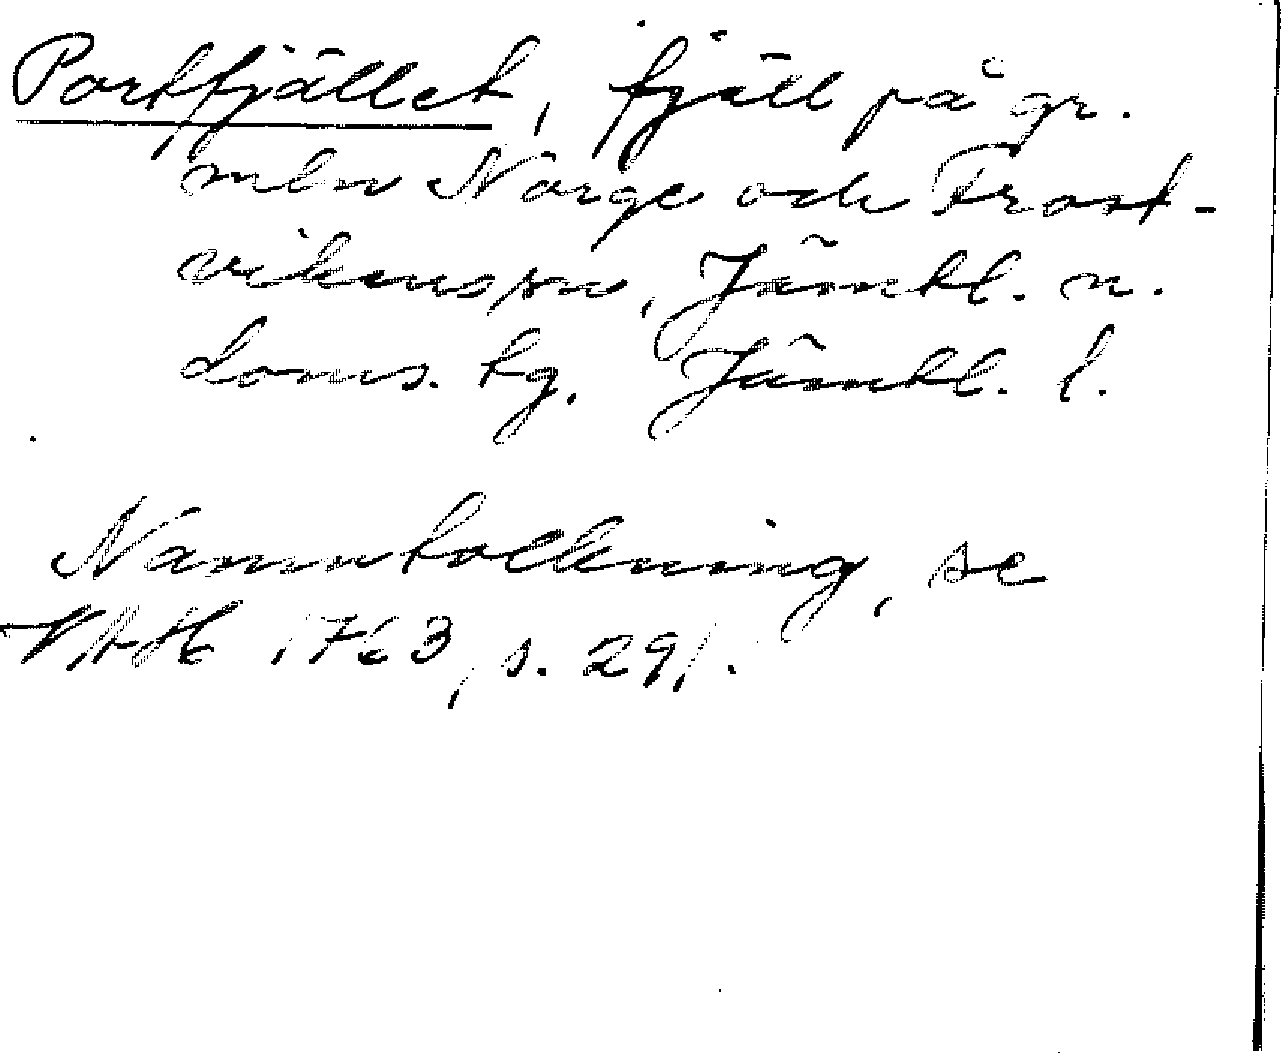 Portfjället, fjäll på gr.
mln Norge och Frost-
vikens sn, Jämtl. n.
doms. tg. Jämtl. l.
Namntolkning, se
1763, s. 291.